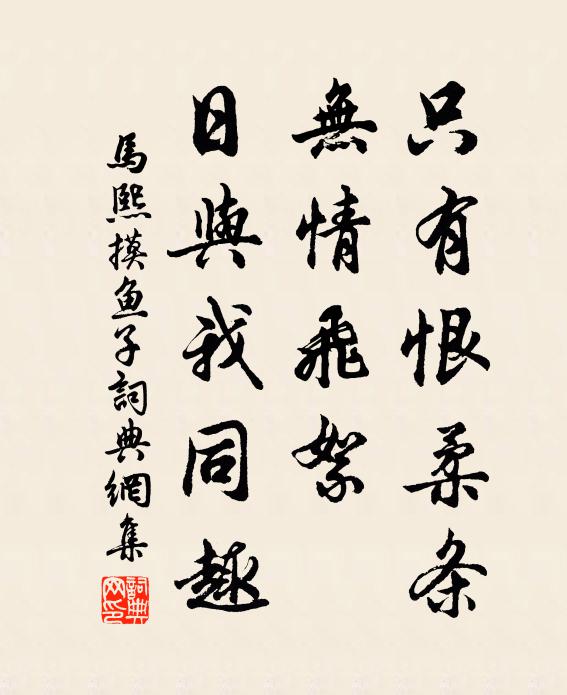 只有恨柔条
無情飛絮
日與我同趣
馬熙摸魚子詞典網集
詞典网印